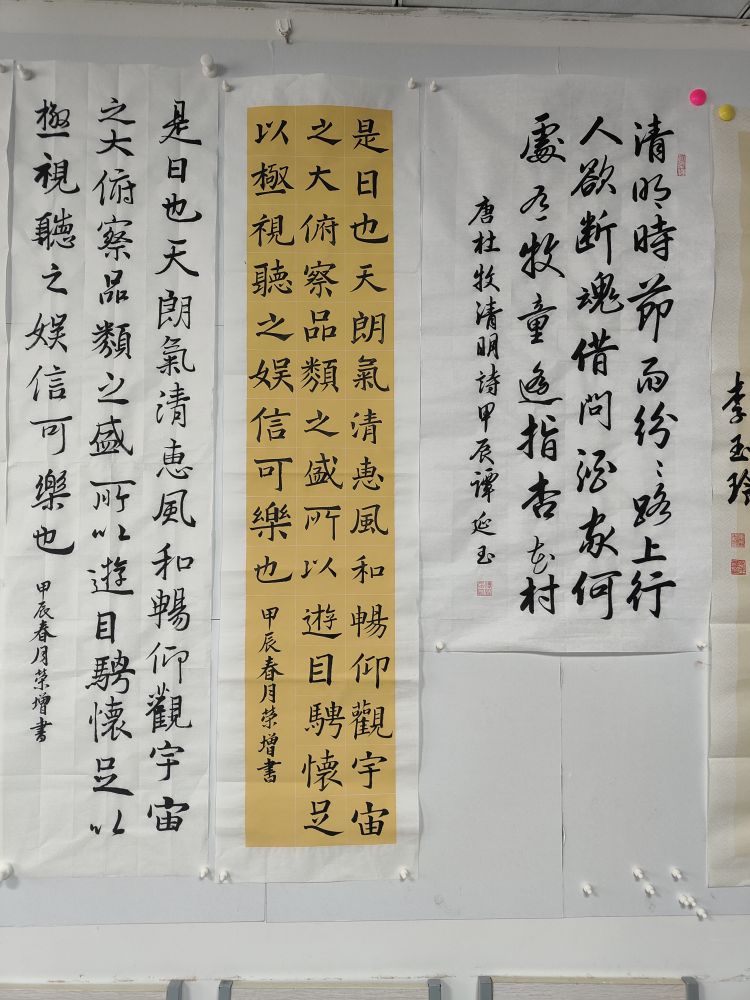 李玉玲
清明時節雨紛〻路上行
人欲断魂借问酒家何
處有牧童遥指杏花村
唐杜牧清明詩甲辰譚延玉
是日也天朗氣清惠風和暢仰觀宇宙
之大俯察品類之盛所以遊目騁懷足
以極視聽之娱信可樂也 甲辰春月荣增書
是日也天朗氣清惠風和暢仰觀宇宙
之大俯察品類之盛所以遊目騁懷足以
極視聽之娱信可樂也 甲辰春月荣增書